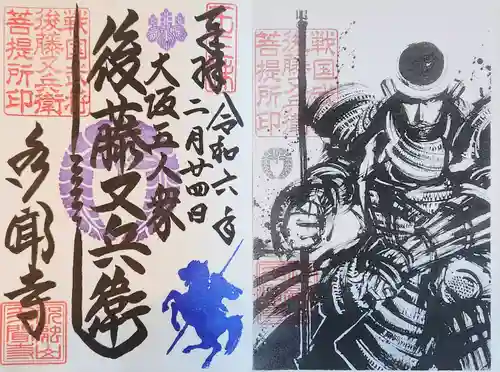 奉拝
令和六年
二月廿四日
大坂五人衆
後藤又兵衛
戦国武将
後藤又兵衛
菩提所印
多聞寺
戦国武将
後藤又兵衛
菩提所印